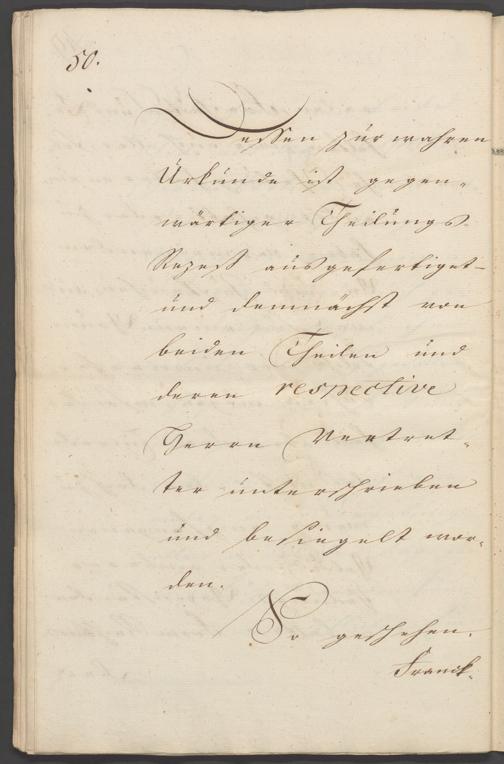 50.
Dessen zur wahren
Urkunde ist gegen-
wärtiger Theilungs-
Rezeß ausgefertiget-
und demnächst von
beiden Theilen und
deren respective
Herrn Vertret-
ter unterschrieben
und besiegelt wor-
den.
So geschehen.
Franck-